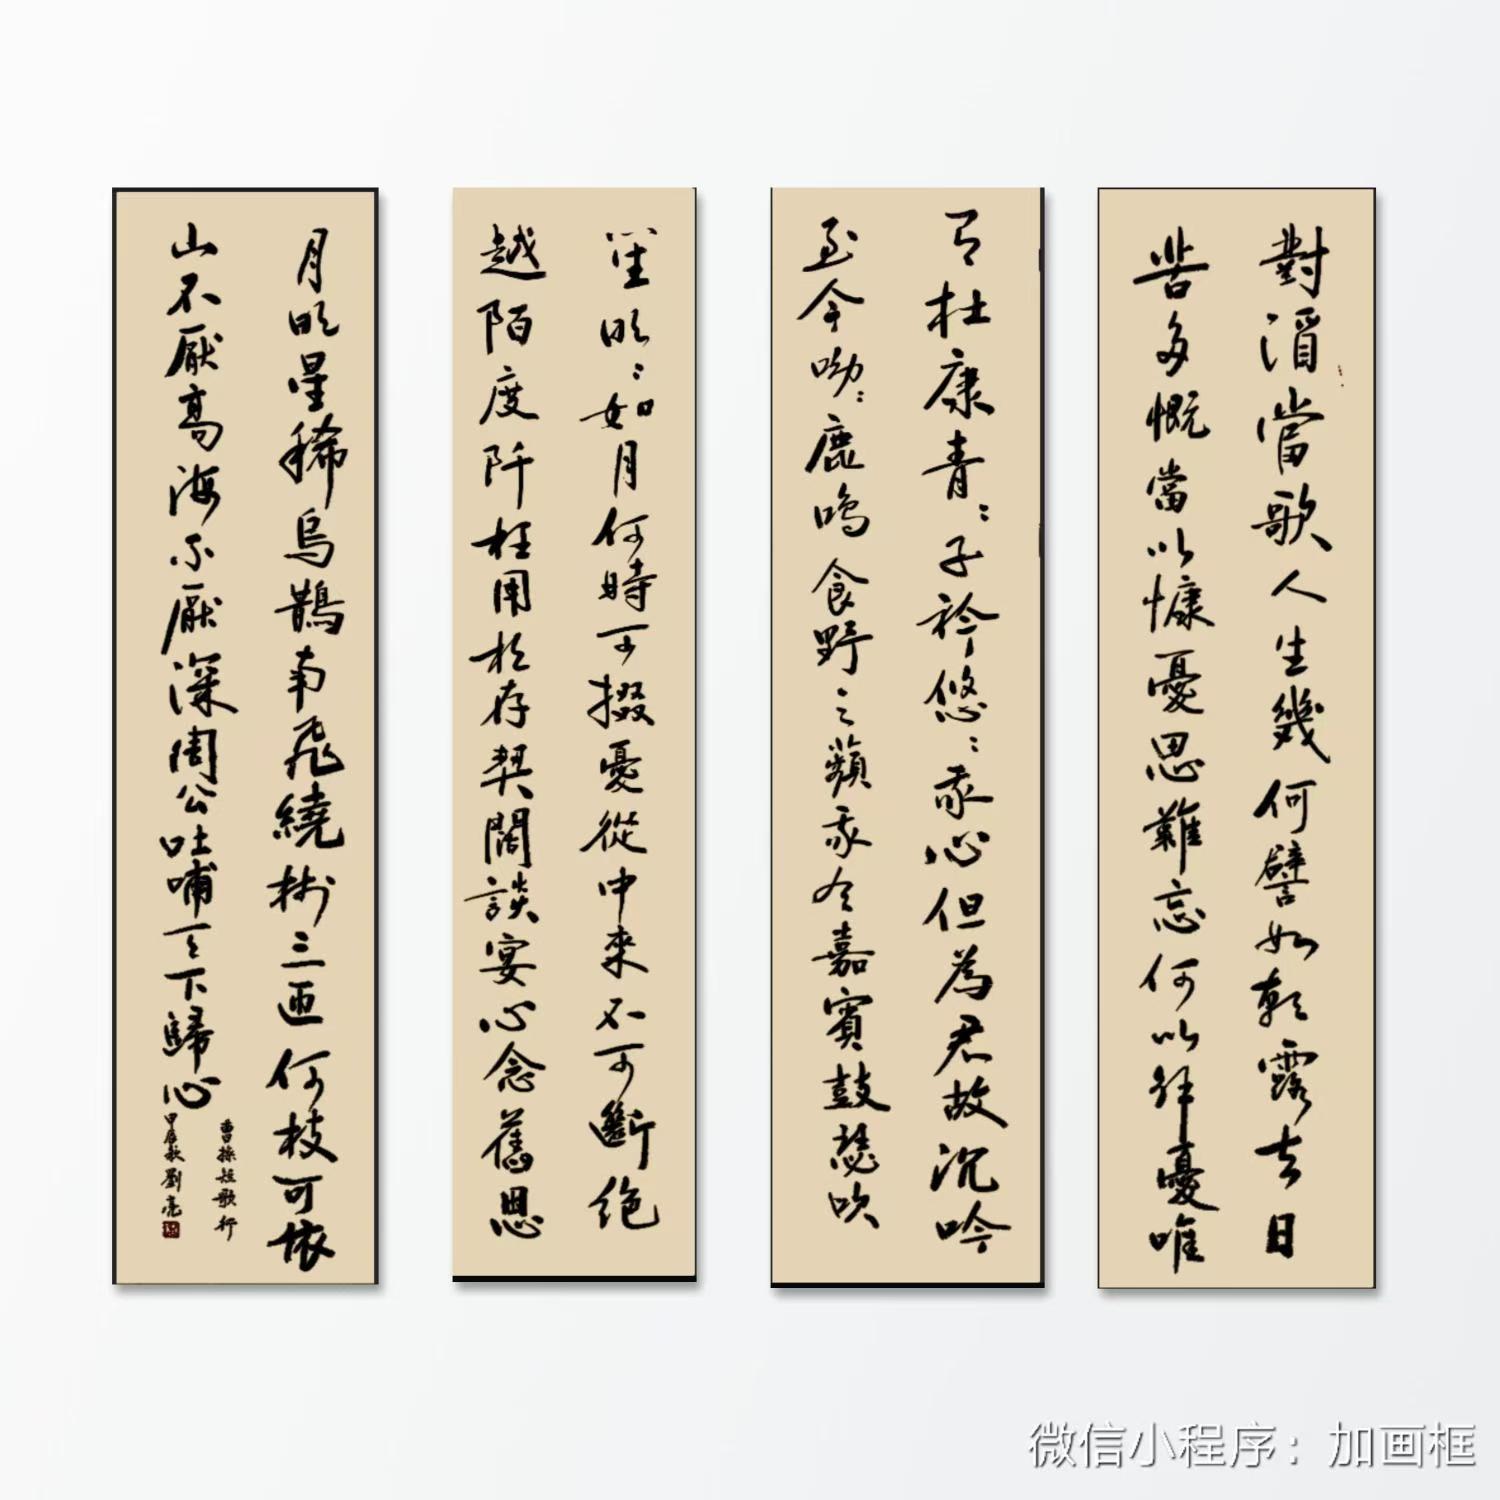 對酒當歌人生幾何譬如朝露去日
苦多慨當以慷憂思難忘何以解憂唯
有杜康青:子衿悠:我心但為君故沉吟
至今呦:鹿鳴食野之蘋我有嘉賓鼓瑟吹
笙明:如月何時可掇憂從中來不可斷絕
越陌度阡枉用相存契闊談宴心念舊恩
月明星稀烏鵲南飛繞樹三匝何枝可依
山不厭高海不厭深周公吐哺天下歸心
曹操短歌行
甲辰秋劉亮
微信小程序：加画框